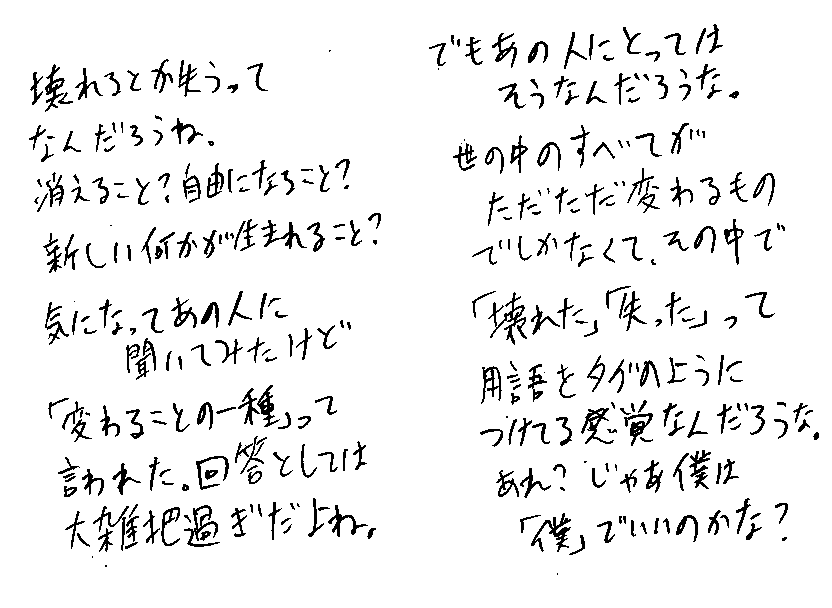 壊れるとか失うって
なんだろうね。
消えること?自由になること?
新しい何かが生まれること?
気になってあの人に
聞いてみたけど
「変わることの一種」って
言われた。回答としては
大雑把過ぎだよね。
でもあの人にとっては
そうなんだろうな。
世の中のすべてが
ただただ変わるもの
でしかなくて、その中で
「壊れた」「失った」って
用語をタグのように
つけてる感覚なんだろうな。
あれ?じゃあ僕は
「僕」でいいのかな?